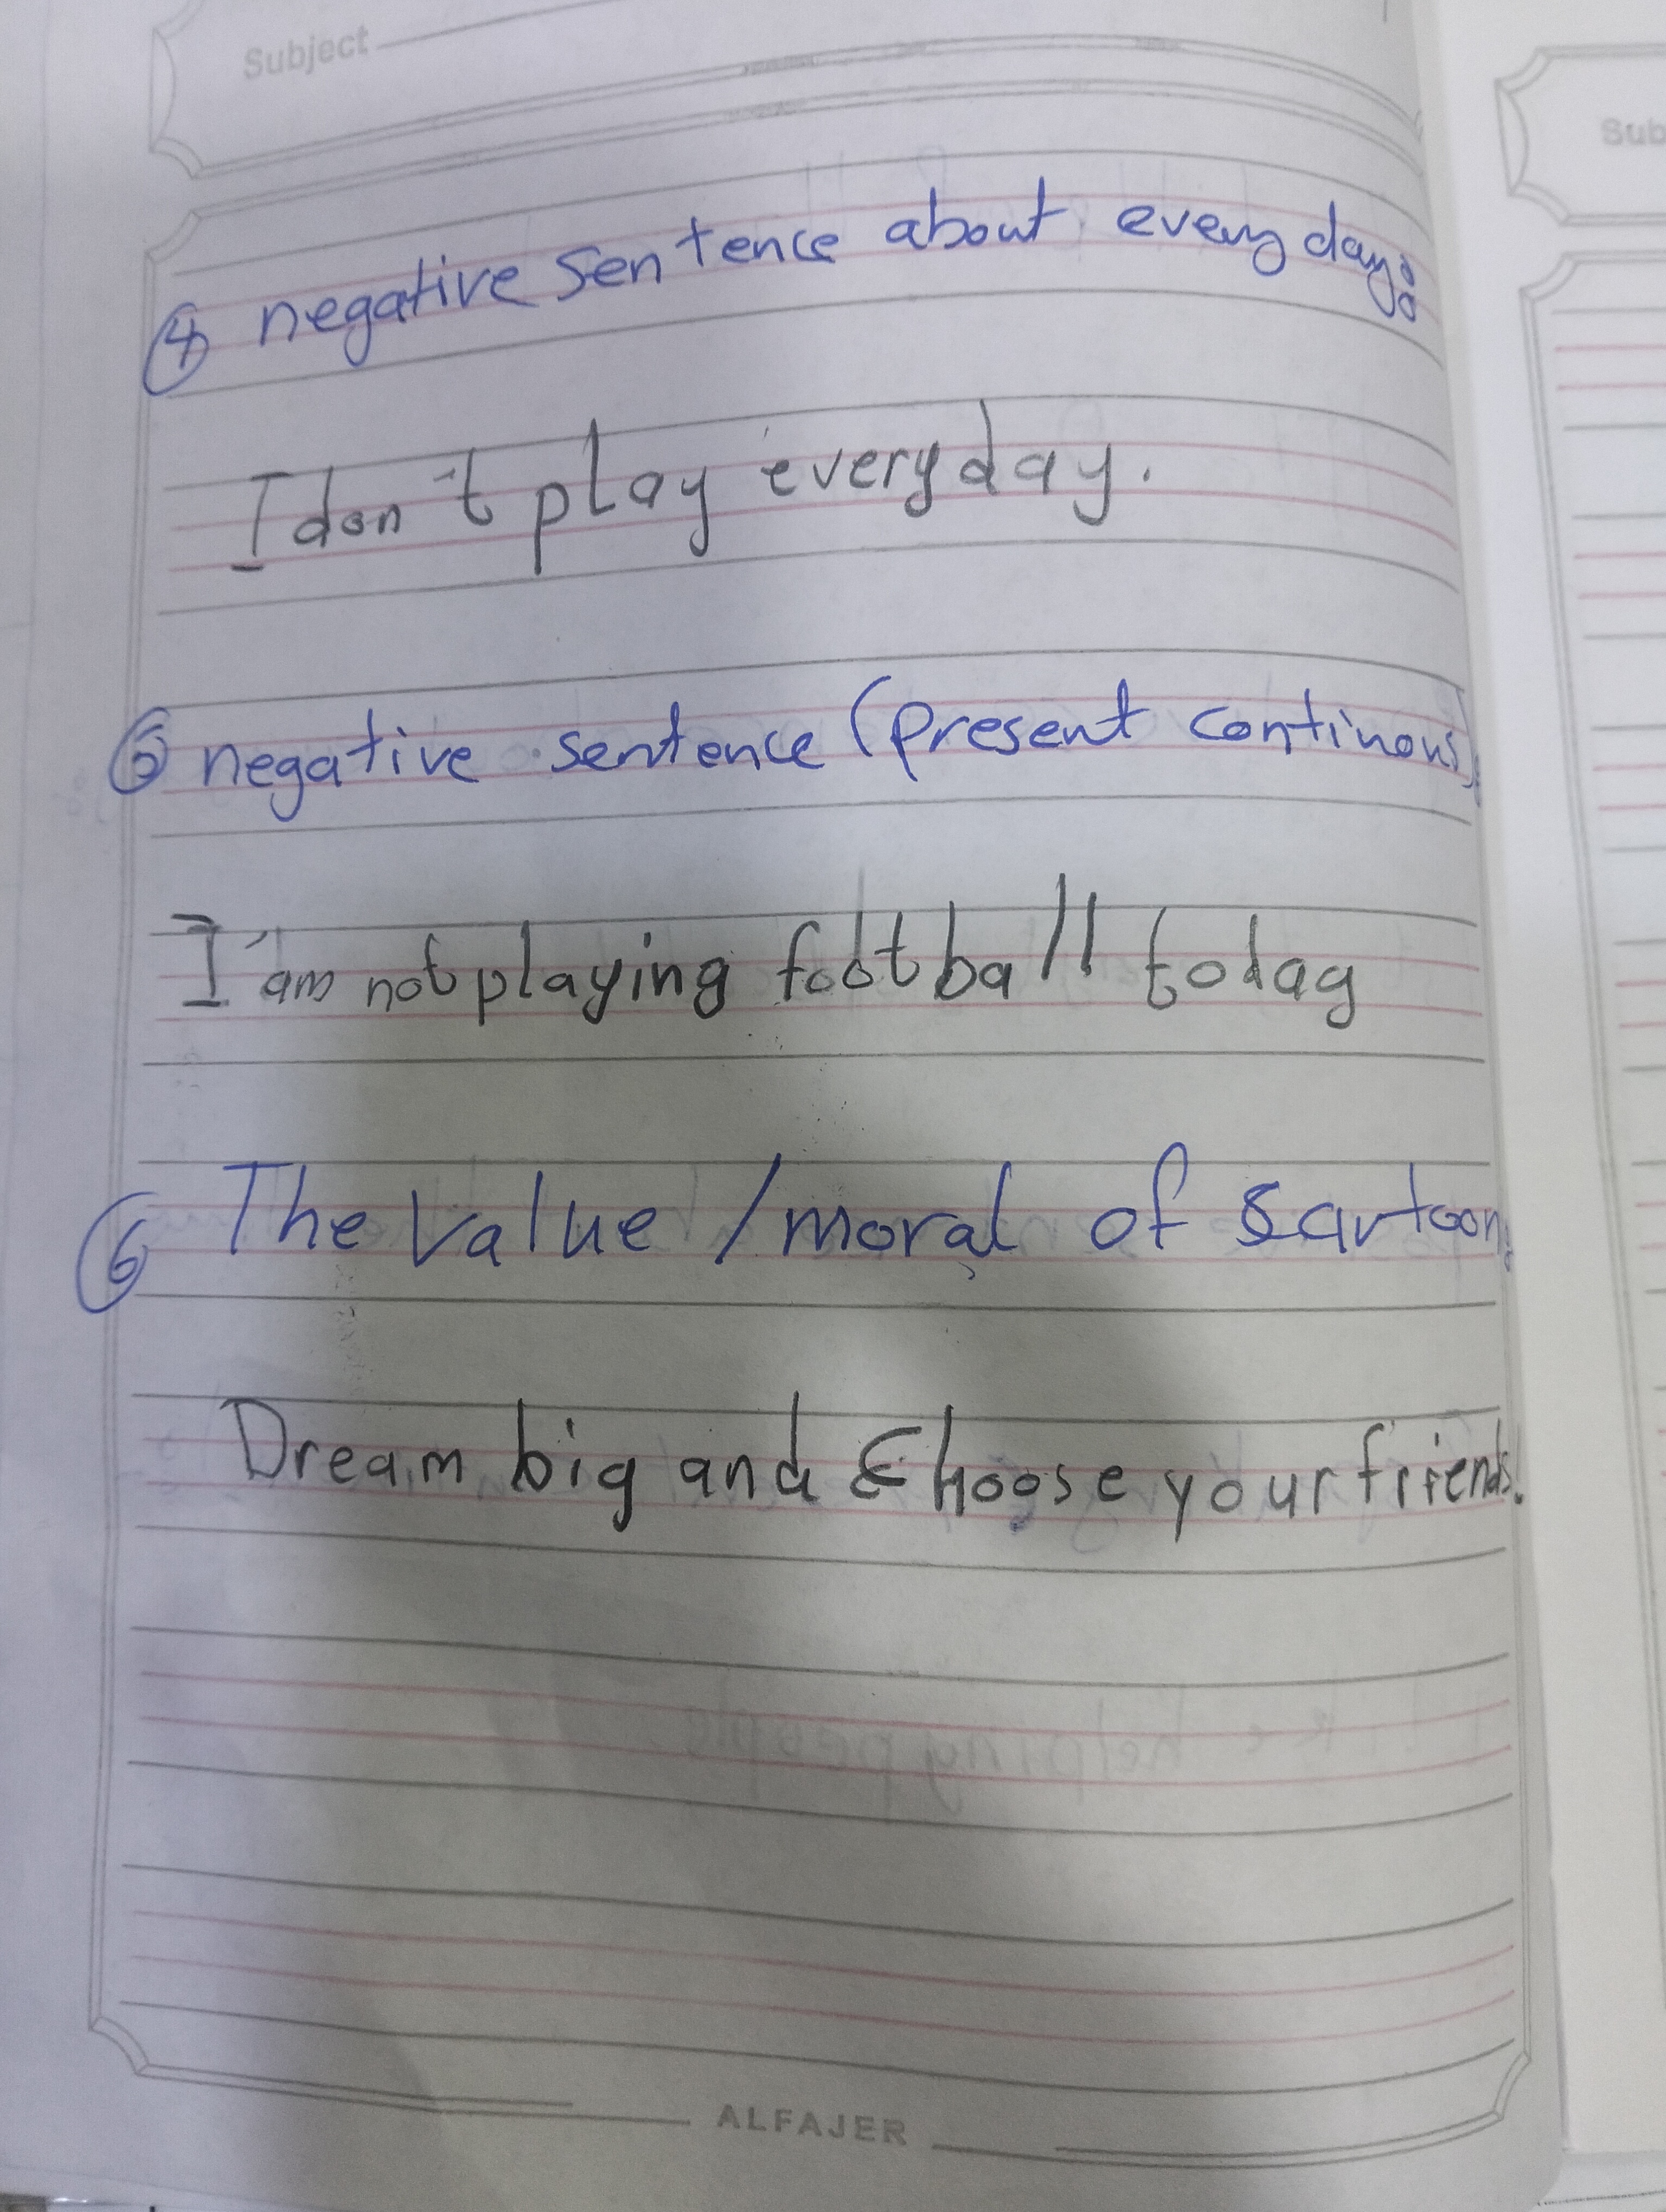 Subject
④ negative sentence about every day:
I don't play everyday.
⑤ negative sentence (present continous)
I'am not playing football today
⑥ The value / moral of cartoon:
Dream big and choose your friends.
ALFAJER
Sub